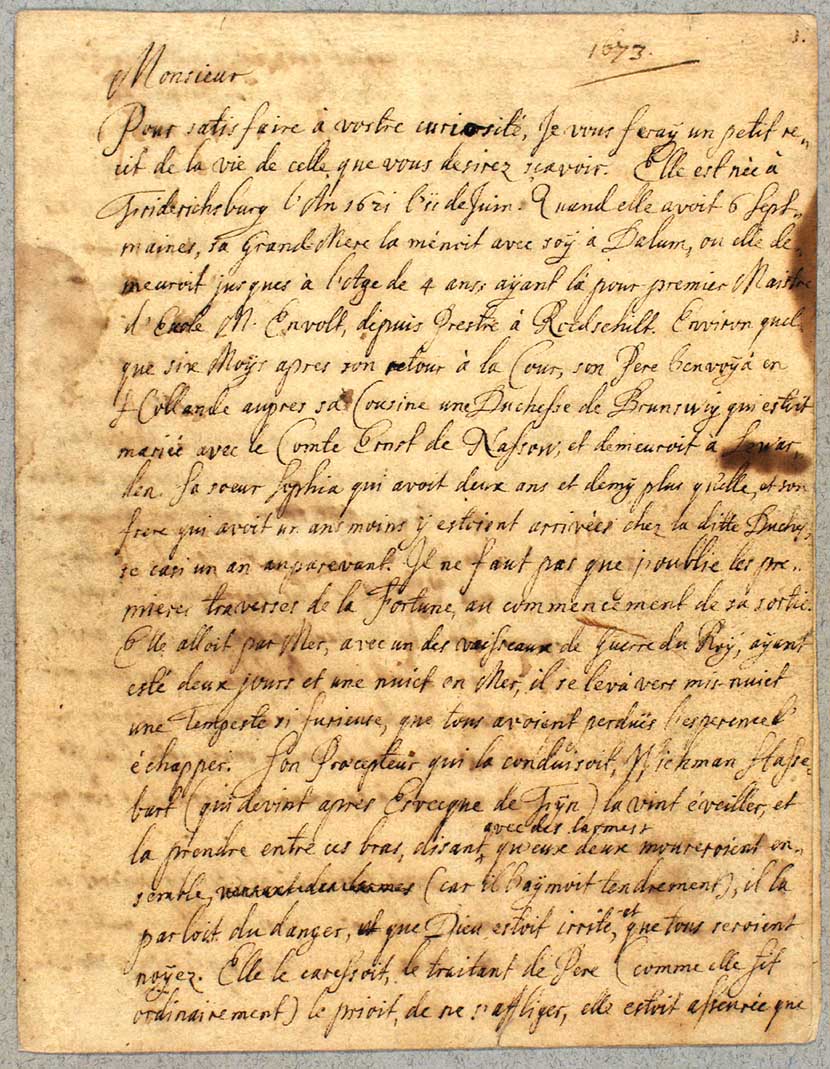 1673.
3.
Monsieur
Pour satisfaire à vostre curiosité, Je vous feraÿ un petit re„
cit de la vie de celle que vous desirez scavoir. Elle est née à
Friderichsburg l'An 1621 l'ii de Juin. Quand elle avoit 6 Sept„
maines, sa Grand Mere la ménoit avec soÿ à Dalum, ou elle de„
meuroit jusques à l'Age de 4 ans: aÿant là pour premier Maistre
d'Ecole M. Envolt, depuis Prestre à Roedschildt. Environ quel„
que six Moÿs apres son retour à la Cour, son Pere l'envoÿá en
Hollande aupres sa Cousine une Duchesse de Brunswÿg qui estoit
mariée avec le Comte Ernst de Nassow, et demeuroit à Lewar„
den. Sa soeur Sophia qui avoit deux ans et demÿ plus qu'elle, et son
frere qui avoit un ans moins ÿ estoient arrivées chez la ditte Duches„
se casi un an auparevant. Il ne faut pas que j'oublie les pre„
mieres traverses de la Fortune, au commencement de sa sortie.
Elle alloit par Mer, avec un des vaisseaux de Guerre du Roÿ, aÿant
esté deux jours et une nuict en Mer, il se levá vers mis-nuict
une Tempeste si furieuse, que tous avoient perdües l'esperence d'
échapper. Son Præcepteur qui la conduisoit, Wichman Hasse„
bart (qui devint apres Evecque de Fÿn) la vint éveiller, et
la prendre entre ces bras, disant avec des larmes, qu'eux deux moureroient en„
semble, (car il l'aÿmoit tendrement), il la
parloit du danger, que Dieu estoit irrité, et que tous seroient
noÿez. Elle le caressoit, le traitant de Pere (comme elle fit
ordinairement) le prioit, de ne s'affliger, elle estoit asseurée que